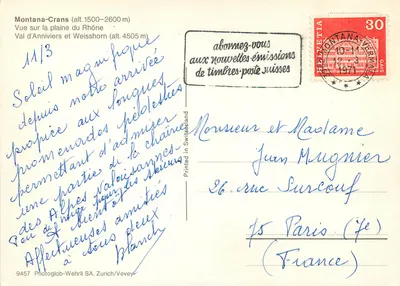 Montana-Crans (alt. 1500-2600 m)
Vue sur la plaine du Rhône
Val d'Anniviers et Weisshorn (alt. 4505 m)
11/3
Soleil magnifique
depuis notre arrivée
propice aux longues
promenades pédestres
permettant d'admirer
une partie de la chaîne
des Alpes Valaisannes
Peu de neige pour les skieurs
A bientôt
Affectueuses amitiés
à tous deux
Blanch
9457 Photoglob-Wehrli SA. Zurich/Vevey
Printed in Switzerland
abonnez-vous
aux nouvelles émissions
de timbres-poste suisses
MONTANA-VERMALA
1971
HELVETIA
30
Monsieur et Madame
Jean Mugnier
26. rue Surcouf
75 Paris (7e)
(France)